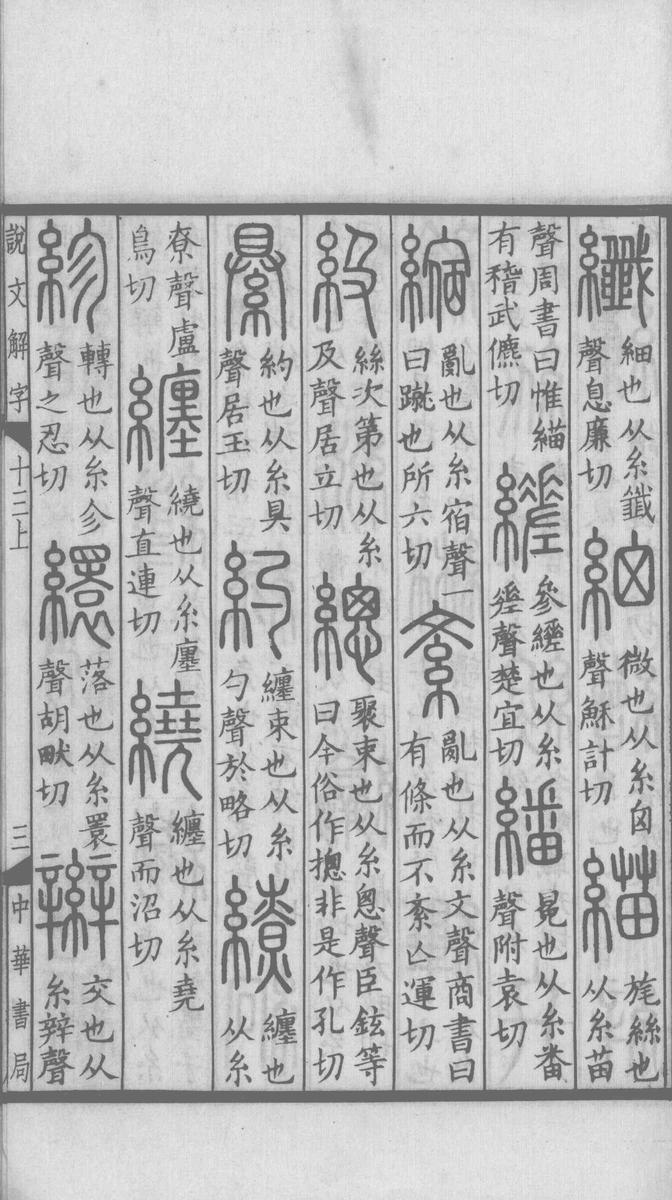 纖細也从糸韱聲息廉切細微也从糸囟聲穌計切緢旄絲也从糸苗
聲周書曰惟緢有稽武儦切縒參縒也从糸差聲楚宜切繙冕也从糸番聲附袁切
縮亂也从糸宿聲一曰蹴也所六切紊亂也从糸文聲商書曰有條而不紊亡運切
級絲次第也从糸及聲居立切總聚束也从糸悤聲臣鉉等曰今俗作摠非是作孔切
䋰約也从糸具聲居玉切約纏束也从糸勺聲於略切繚纏也从糸
尞聲盧鳥切纏繞也从糸廛聲直連切繞纏也从糸堯聲而沼切
紾轉也从糸㐱聲之忍切繯落也从糸瞏聲胡畎切辮交也从糸辡聲
說文解字 十三上 三 中華書局